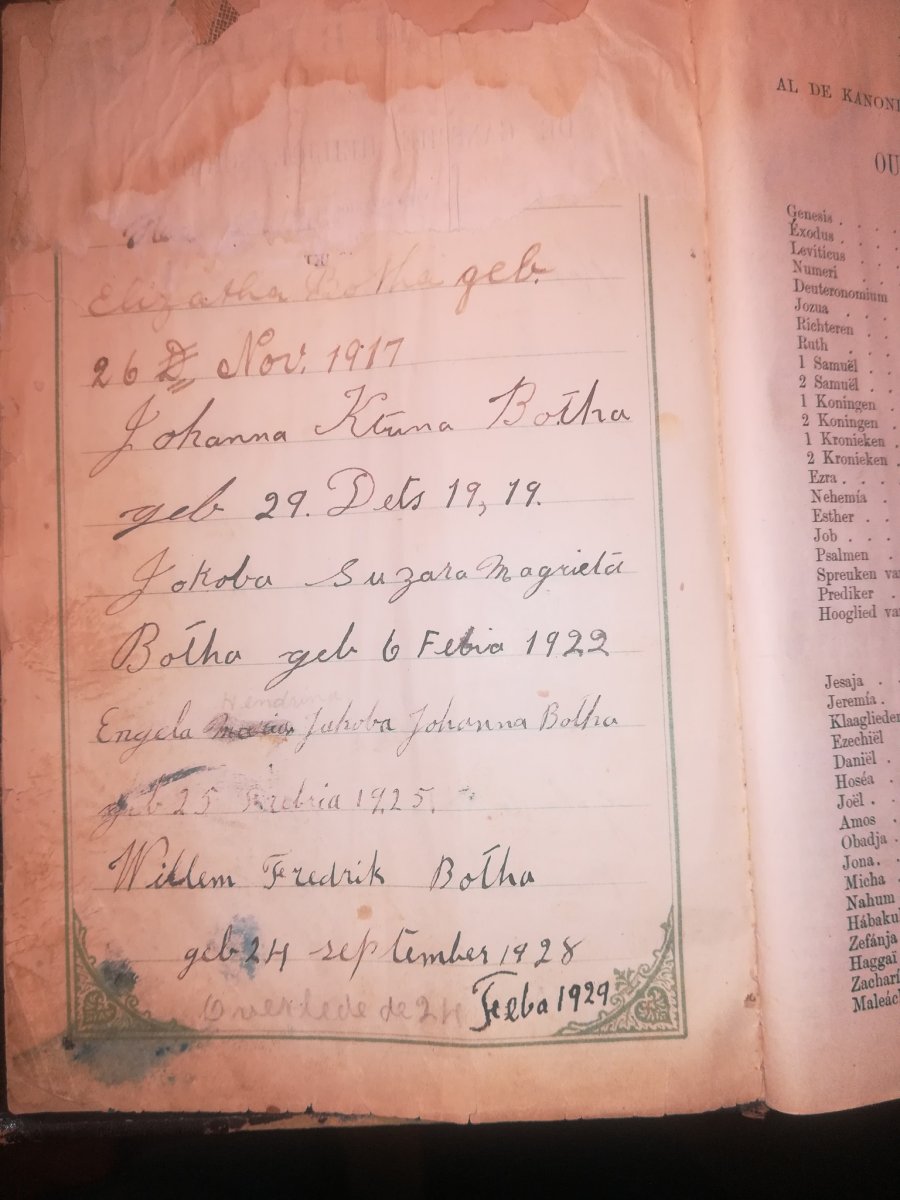 Elizatha Botha geb.
26 Nov. 1917
Johanna Ktuna Botha
geb 29. Dets 19,19.
Jokoba Suzara Magrieta
Botha geb 6 Febia 1922
Hendrina
Engela Maria Jakoba Johanna Botha
geb 25 Febria 1925.
Willem Fredrik Botha
geb 24 september 1928
Overlede de 24 Felba 1929
AL DE KANONI
OU
Genesis .
Éxodus .
Leviticus
Numeri
Deuteronomium
Jozua
Richteren
Ruth
1 Samuël
2 Samuël
1 Koningen
2 Koningen
1 Kronieken
2 Kronieken
Ezra
Nehemía
Esther
Job
Psalmen
Spreuken va
Prediker
Hooglied va
Jesaja
Jeremía
Klaaglieder
Ezechiël
Daniël
Hoséa
Joël
Amos
Obadja
Jona
Micha
Nahum
Hábakuk
Zefánja
Haggaí
Zacharí
Maleác